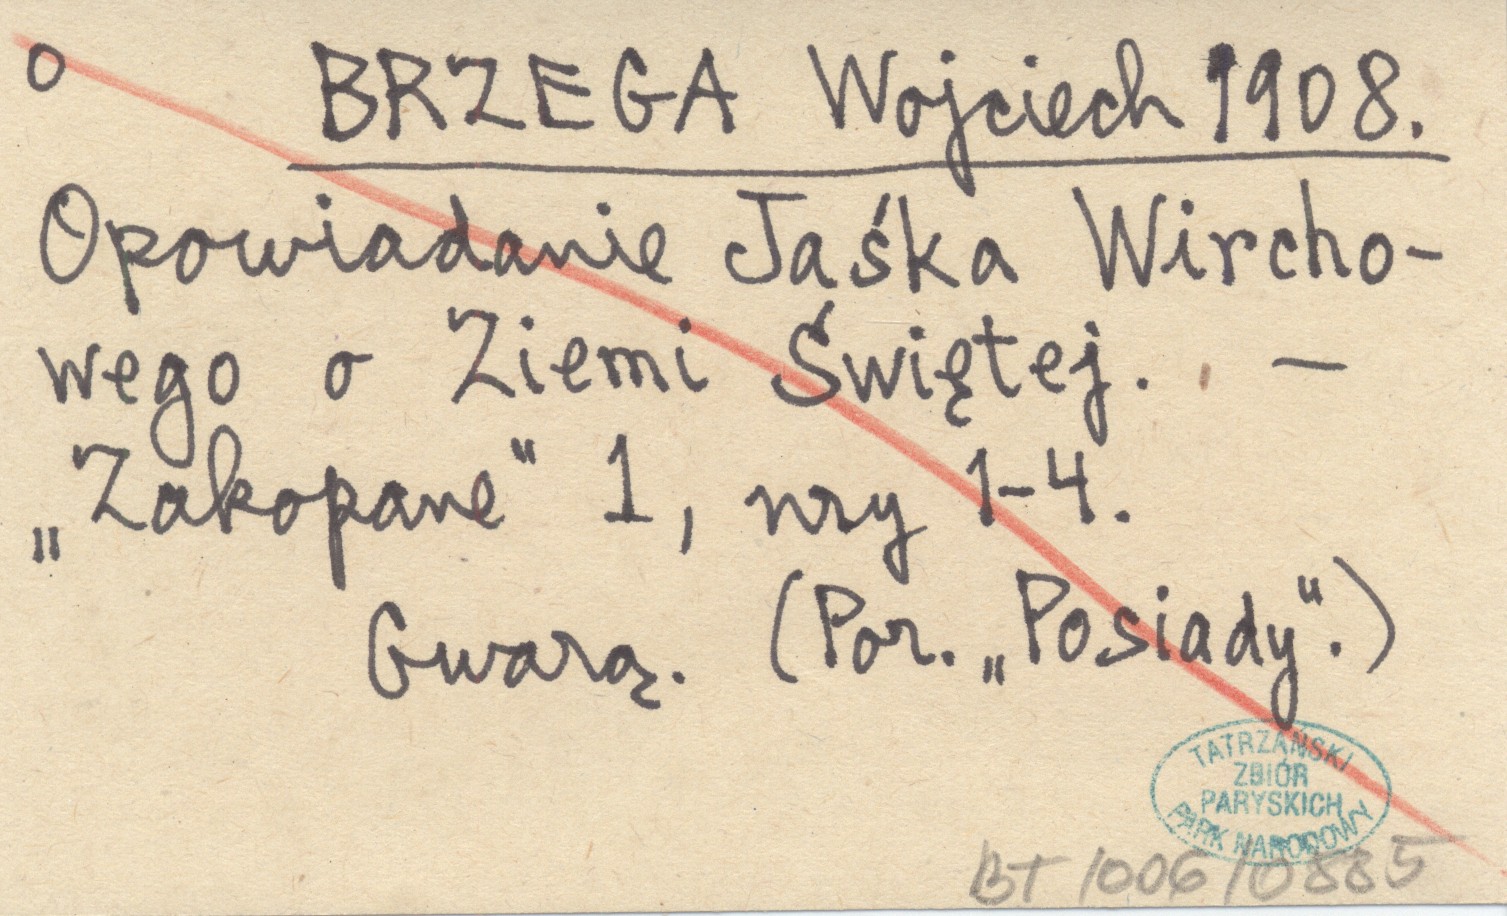 o BRZEGA Wojciech 1908.
Opowiadanie Jaśka Wircho-
wego o Ziemi Świętej. —
„Zakopane" 1, nry 1-4.
Gwarą. (Por. „Posiady".)
TATRZAŃSKI
ZBIÓR
PARYSKICH
PARK NARODOWY
BT 100610885